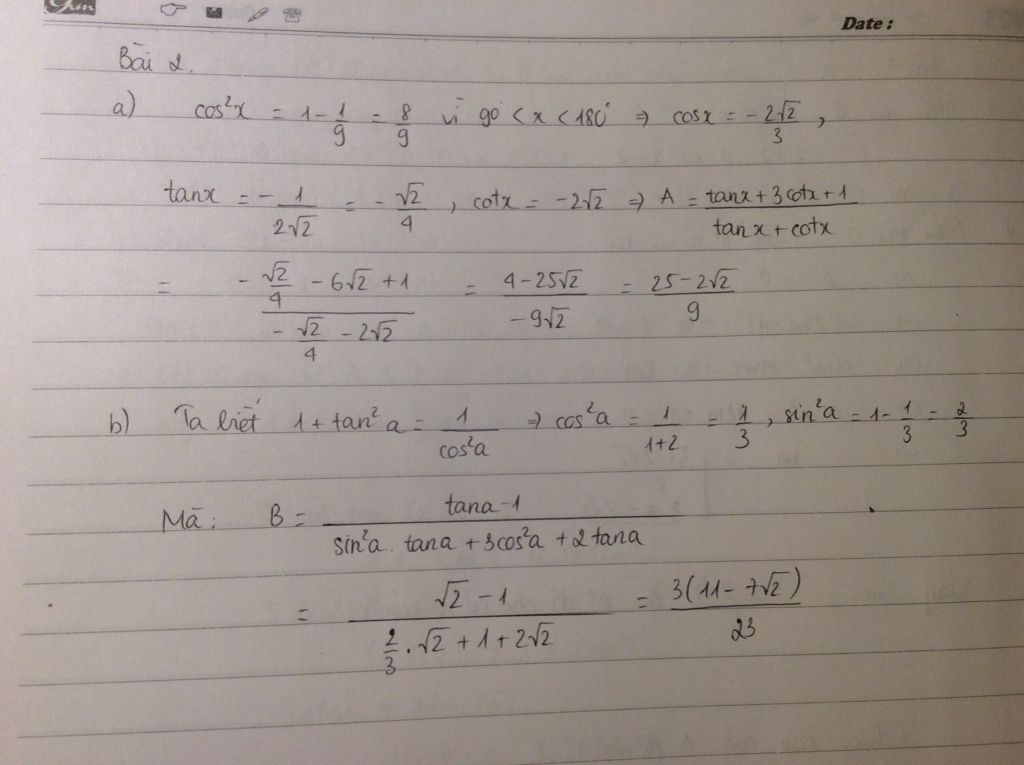 Date :
Bài 2.
a) cos²x = 1 - 1/9 = 8/9 vì 90° < x < 180° ⇒ cosx = - 2√2/3 ,
tanx = - 1/(2√2) = - √2/4 , cotx = -2√2 ⇒ A = (tanx + 3cotx + 1)/(tanx + cotx)
= (- √2/4 - 6√2 + 1)/(- √2/4 - 2√2) = (4 - 25√2)/(-9√2) = (25 - 2√2)/9
b) Ta biết 1 + tan²a = 1/cos²a ⇒ cos²a = 1/(1+2) = 1/3 , sin²a = 1 - 1/3 = 2/3
Mà : B = (tana - 1)/(sin²a . tana + 3cos²a + 2tana)
= (√2 - 1)/(2/3 . √2 + 1 + 2√2) = 3(11 - 7√2)/23